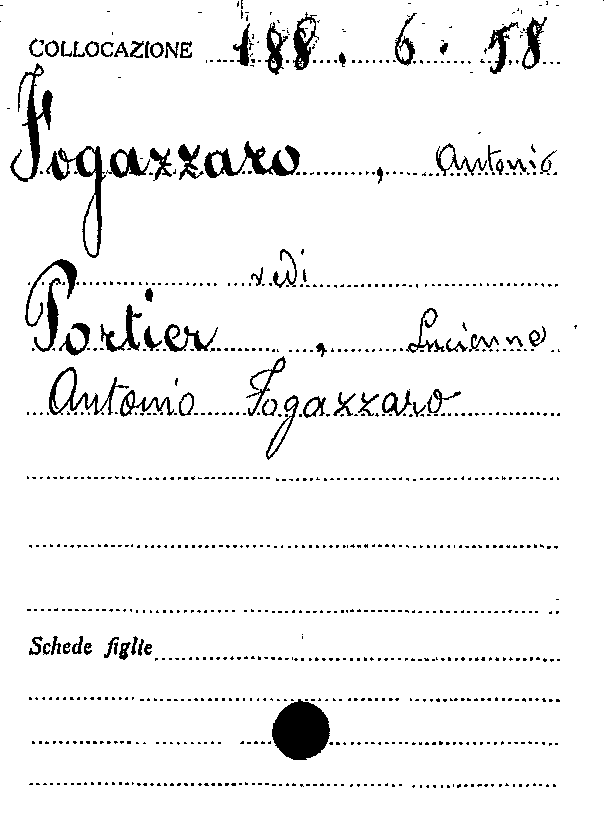 COLLOCAZIONE 188. 6. 58
Fogazzaro, Antonio
vedi
Portier, Lucienne
Antonio Fogazzaro
Schede figlie